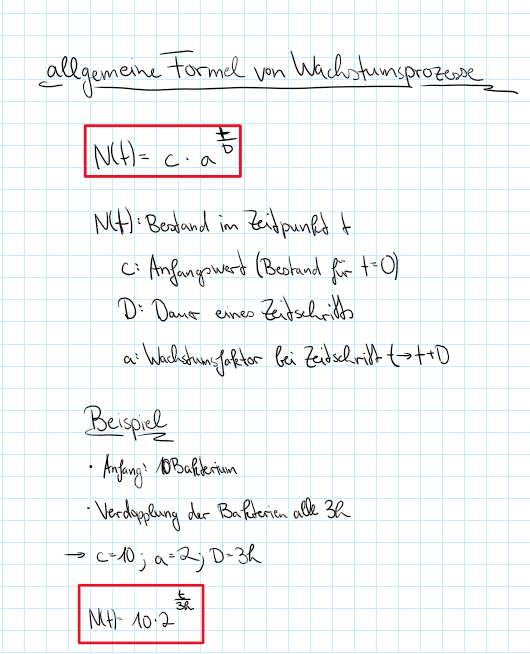 allgemeine Formel von Wachstumsprozesse
N(t) = c · a^(t/D)
N(t): Bestand im Zeitpunkt t
c: Anfangswert (Bestand für t=0)
D: Dauer eines Zeitschritts
a: Wachstumsfaktor bei Zeitschritt t→t+D
Beispiel
· Anfang: 10 Bakterium
· Verdopplung der Bakterien alle 3h
→ c=10; a=2; D=3h
N(t)= 10·2^(t/3h)